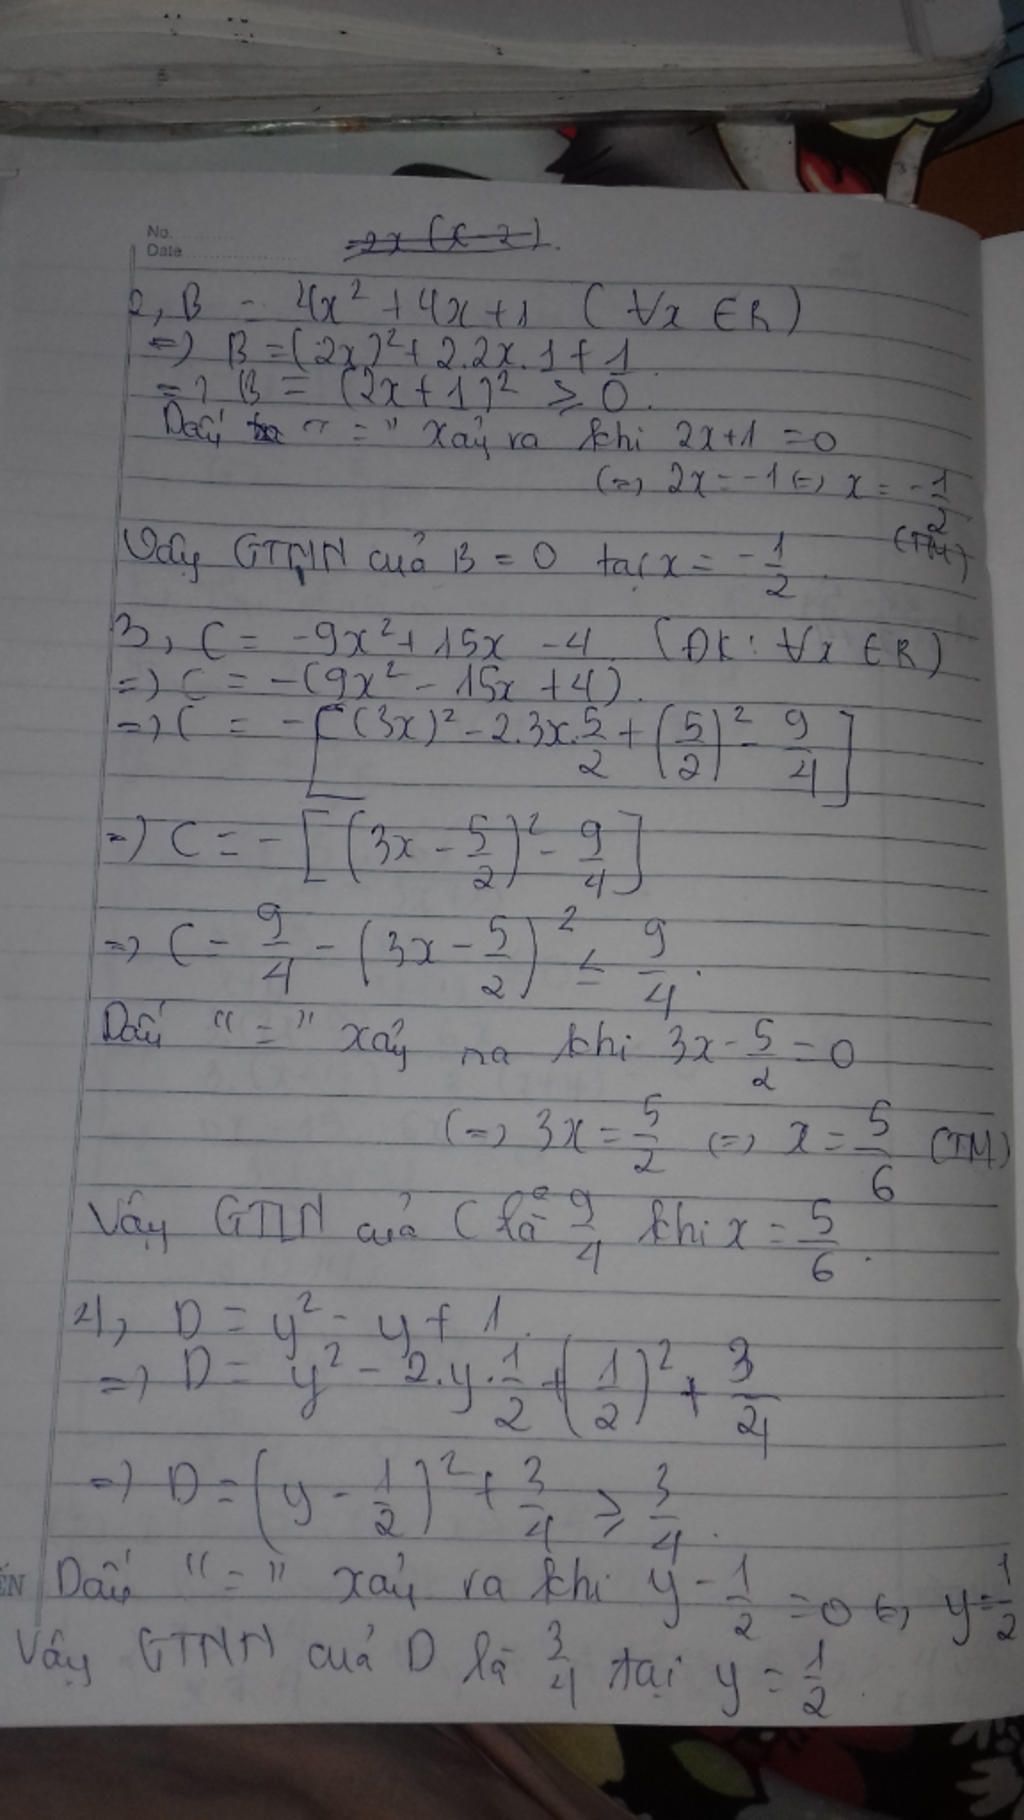 No.
Date
=2x(x-2).
2, B = 4x² + 4x + 1 (∀x ∈ R)
=> B = (2x)² + 2.2x.1 + 1
=> B = (2x+1)² ≥ 0.
Dấu "=" xảy ra khi 2x+1 = 0
<=> 2x = -1 <=> x = -1/2
(TM)
Vậy GTNN cuả B = 0 tại x = -1/2.
3, C = -9x² + 15x - 4 (ĐK: ∀x ∈ R)
=> C = -(9x² - 15x + 4).
=> C = -[(3x)² - 2.3x.5/2 + (5/2)² - 9/4]
=> C = -[(3x - 5/2)² - 9/4]
=> C = 9/4 - (3x - 5/2)² ≤ 9/4.
Dấu "=" xảy ra khi 3x - 5/2 = 0
<=> 3x = 5/2 <=> x = 5/6 (TM)
Vậy GTLN cuả C là 9/4 khi x = 5/6.
4, D = y² - y + 1.
=> D = y² - 2.y.1/2 + (1/2)² + 3/4
=> D = (y - 1/2)² + 3/4 ≥ 3/4.
Dấu "=" xảy ra khi y - 1/2 = 0 <=> y = 1/2
Vậy GTNN cuả D là 3/4 tại y = 1/2.